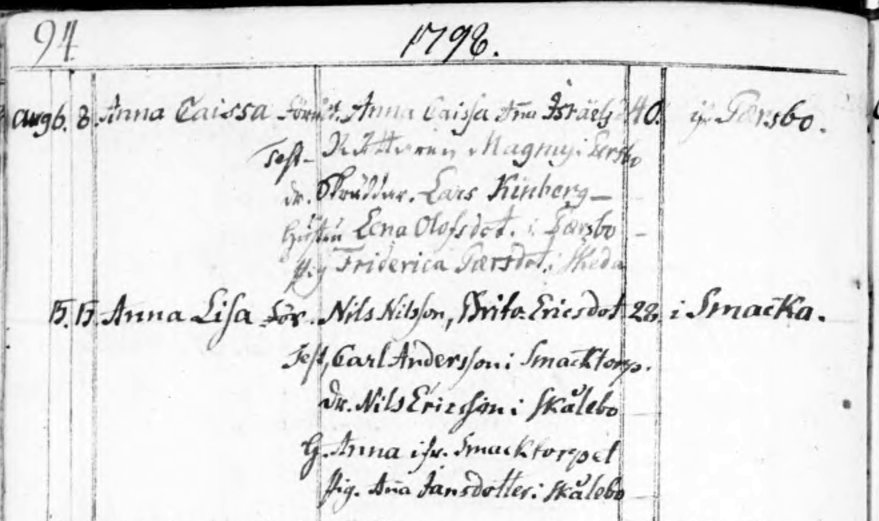 94 1798.
Aug 6. 8. Anna Caissa Anna Caissa Aña Israels 40. Gærsbo.
Test. Magnus i
dr. Skräddar. Lars Kinberg
Hustru Lena Olofsdot. i Gærsbo
pig Friderica Larsdot. i Skeda
15. 15. Anna Lisa För. Nils Nilsson, Brita Ericsdot 28. i Smacka.
Test, Carl Andersson i Smacktorp.
dr. Nils Ericsson i Skålebo
H. Anna ifr. Smacktorpet
pig. Aña Jansdotter i Skålebo